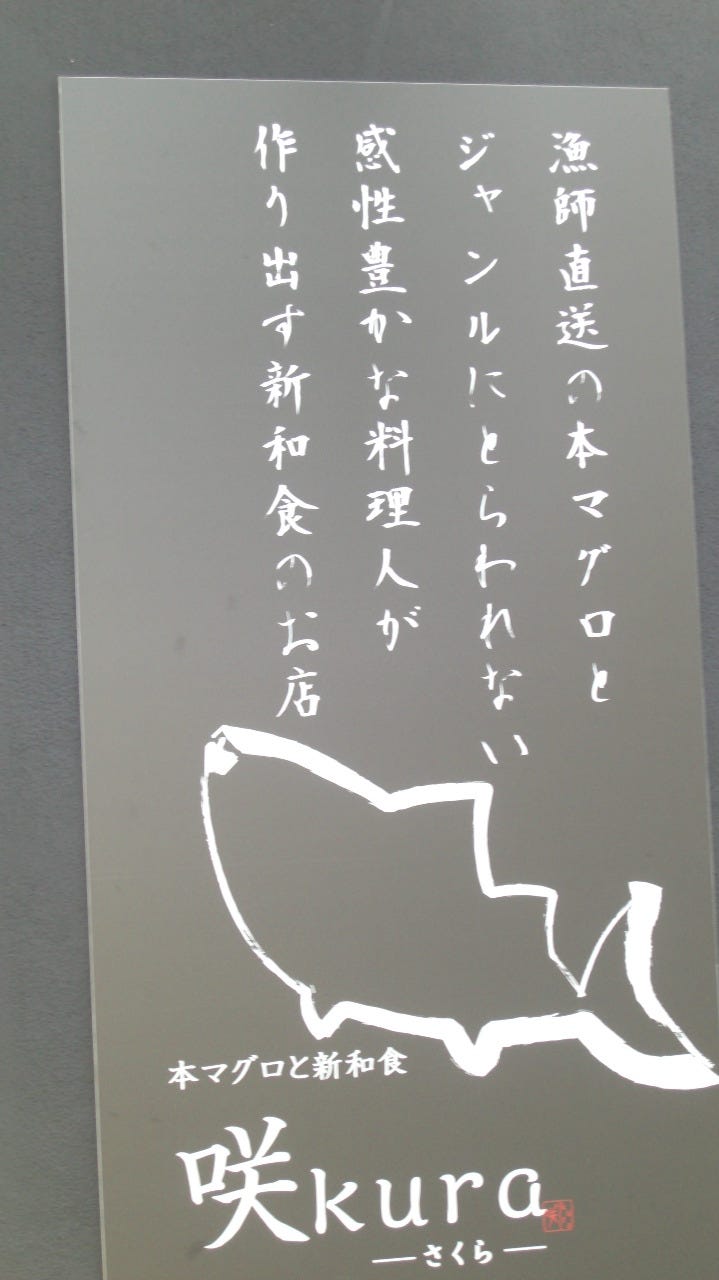 漁師直送の本マグロと
ジャンルにとらわれない
感性豊かな料理人が
作り出す新和食のお店
本マグロと新和食
咲kura
さくら